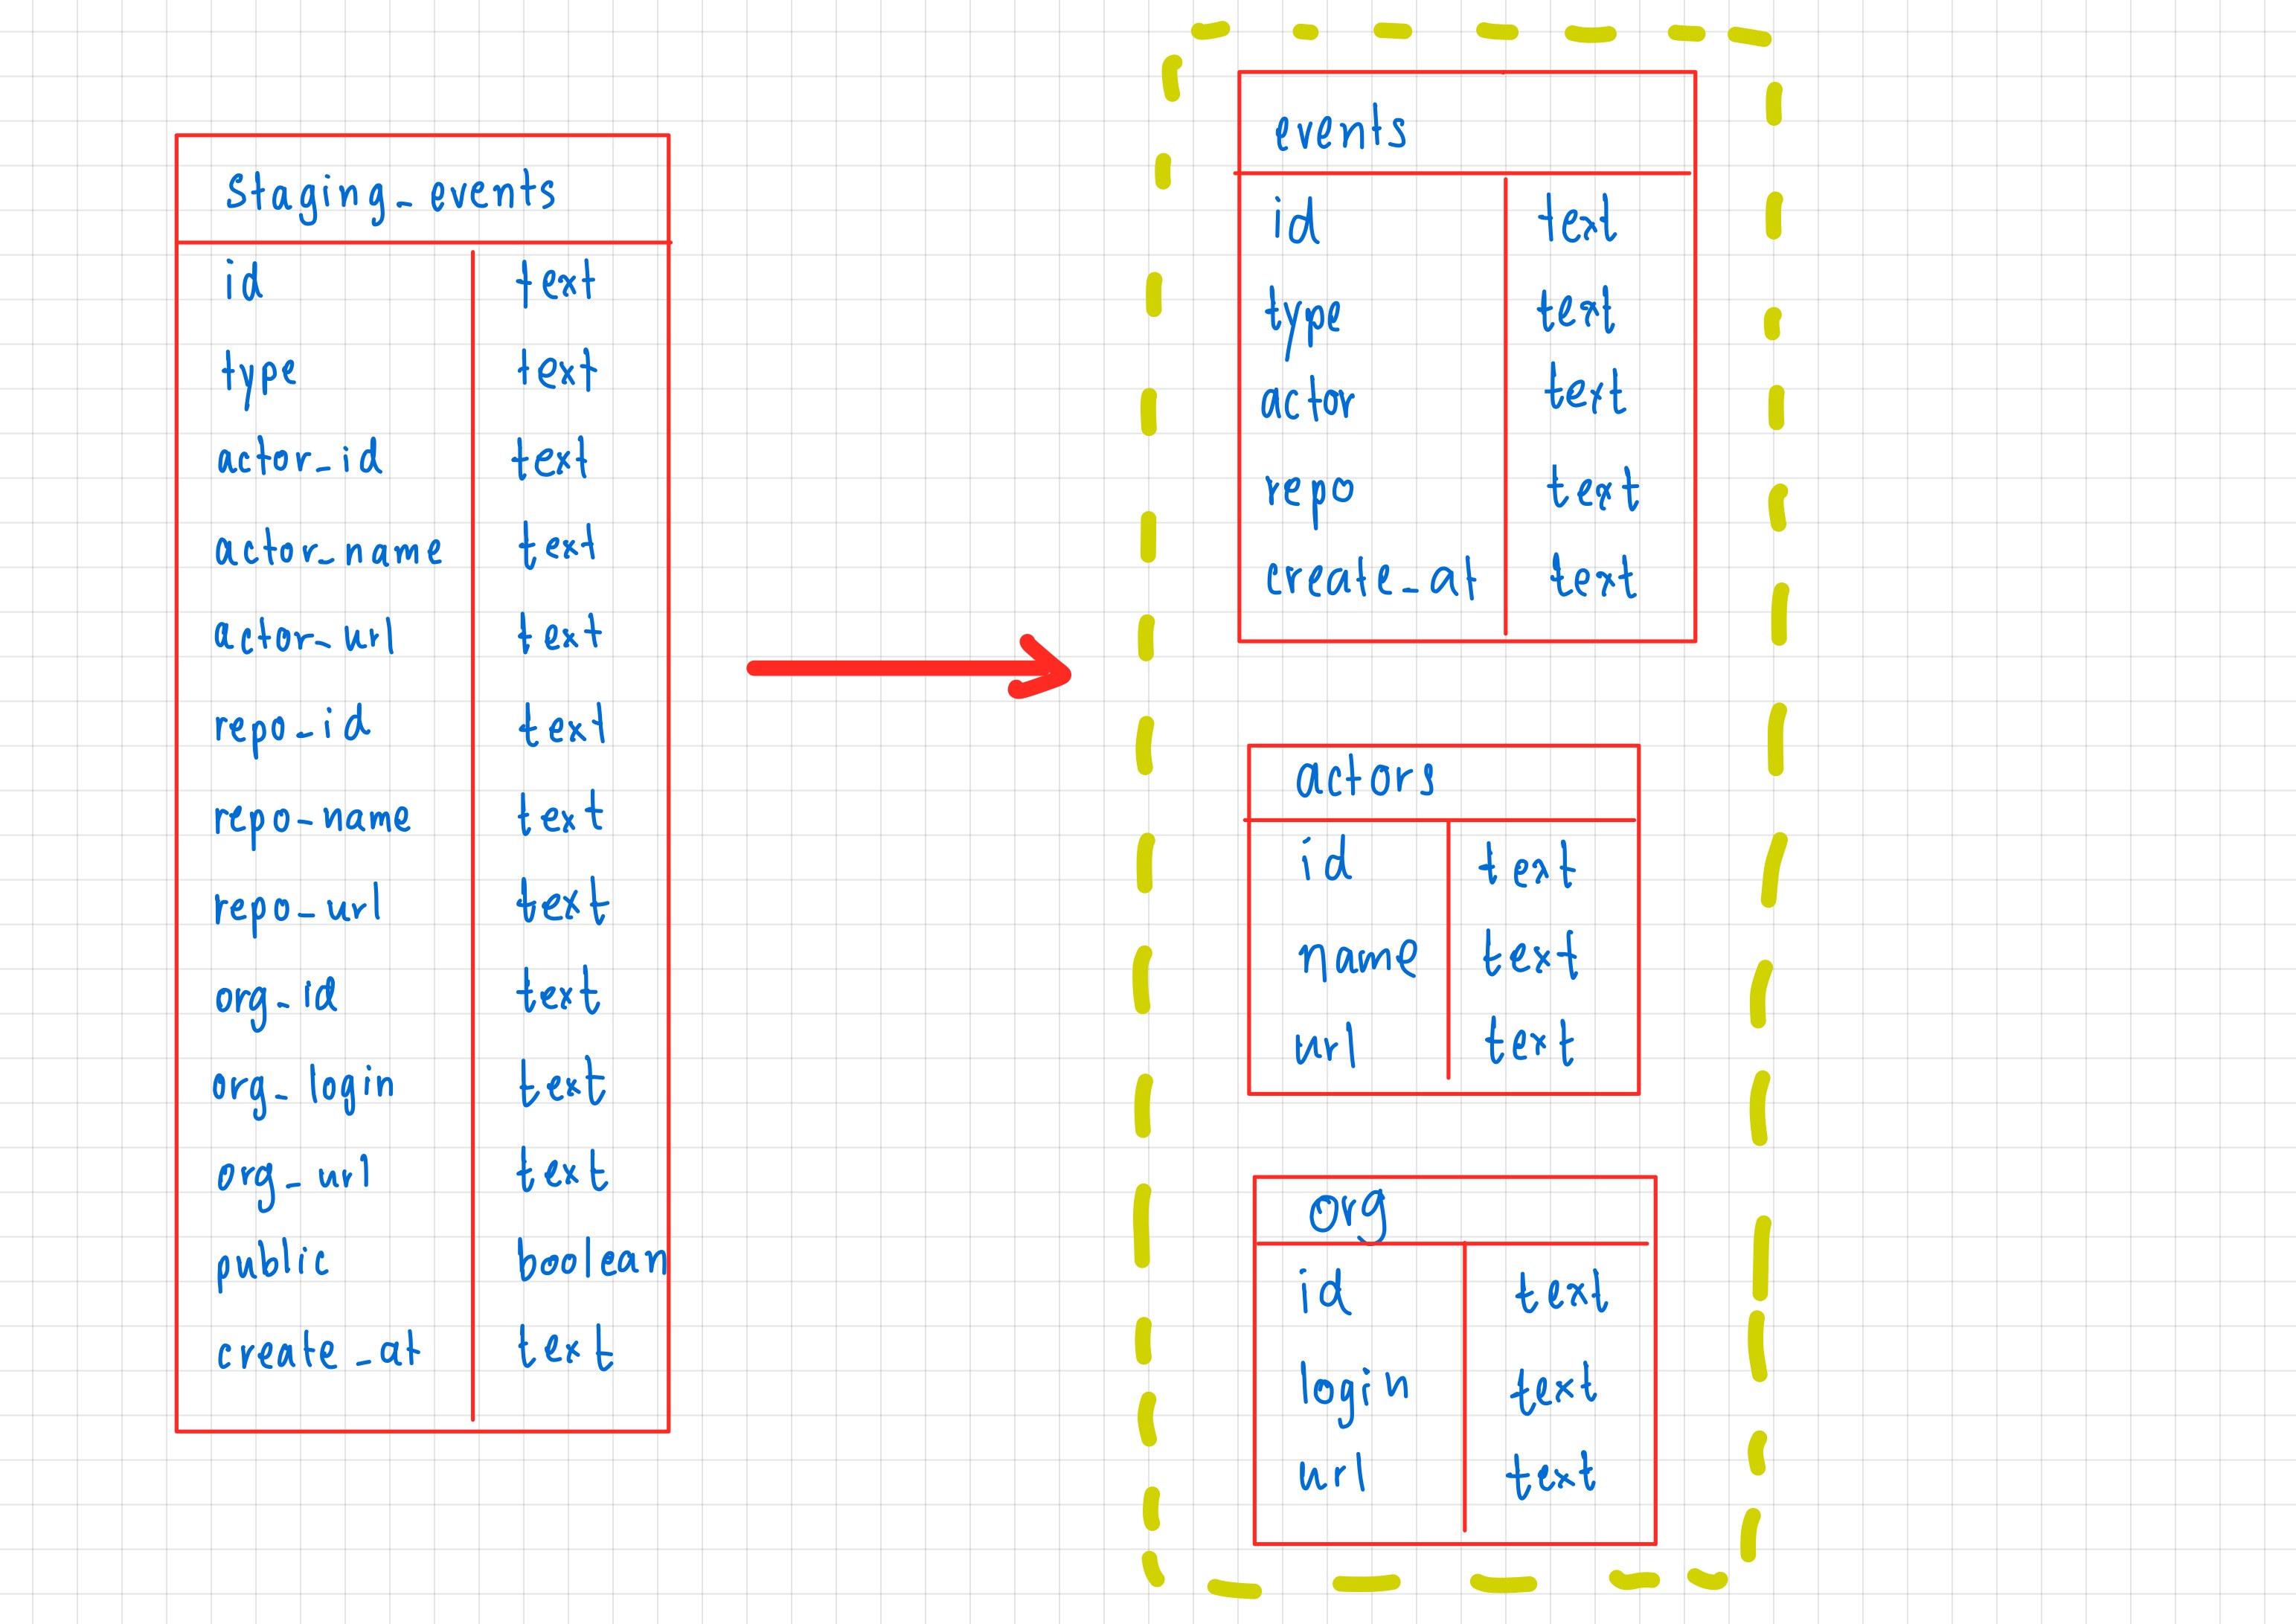 staging_events
id text
type text
actor_id text
actor_name text
actor_url text
repo_id text
repo_name text
repo_url text
org_id text
org_login text
org_url text
public boolean
create_at text
events
id text
type text
actor text
repo text
create_at text
actors
id text
name text
url text
org
id text
login text
url text